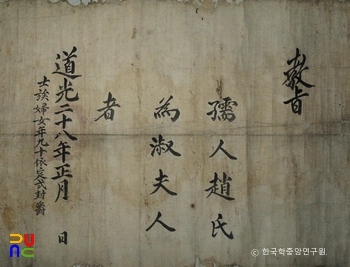 敎旨
孺人趙氏
為淑夫人
者
道光二十八年正月 日
士族婦女年九十依定式封爵
© 한국학중앙연구원